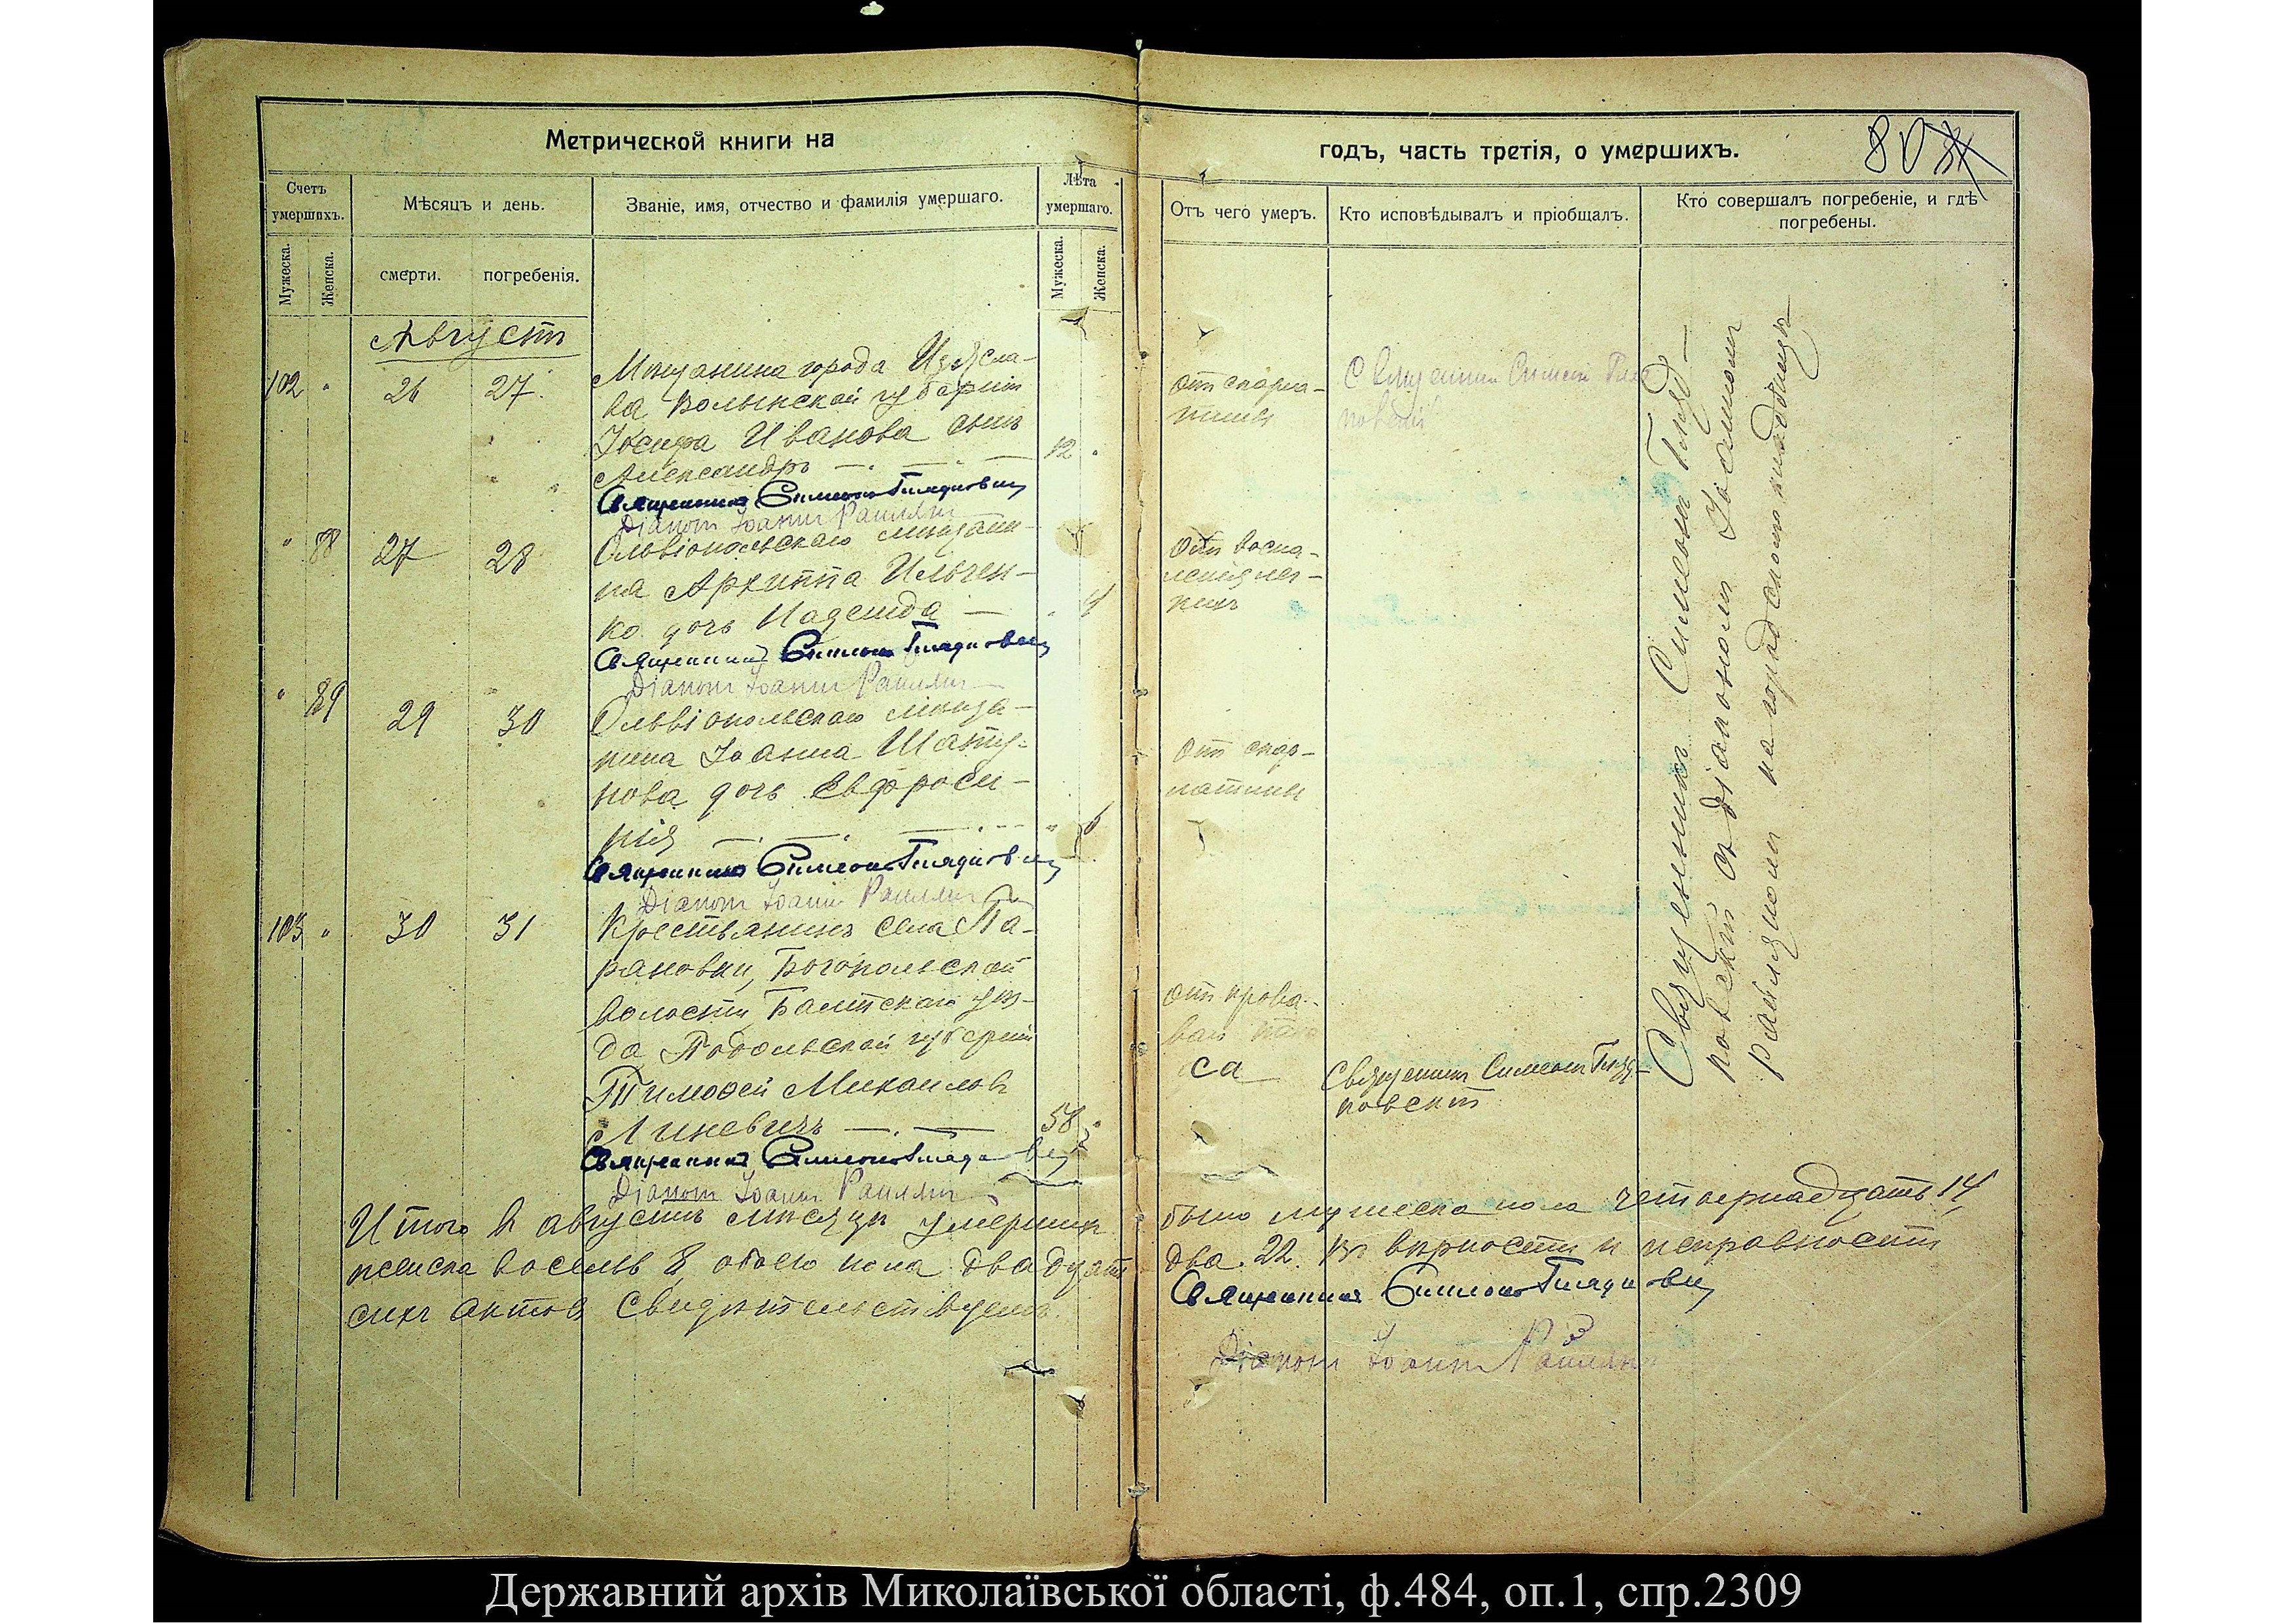 Метрической книги на
годъ, часть третія, о умершихъ.
80
Счетъ умершихъ.
Мѣсяцъ и день.
Званіе, имя, отчество и фамилія умершаго.
Лѣта умершаго.
Отъ чего умеръ.
Кто исповѣдывалъ и пріобщалъ.
Кто совершалъ погребеніе, и гдѣ погребены.
Мужеска.
Женска.
смерти.
погребенія.
Мужеска.
Женска.
Августъ
102 " 26 27
Мѣщанина города Изясла-
ва Волынской губерніи
Іосифа Иванова сынъ
Александръ 12
Священникъ Симеонъ
Діаконъ Іоаннъ
От скарла-
тины
Священникъ Симеонъ
" 88 27 28
Ольвіопольскаго мѣщани-
на Архиппа Ильчен-
ко дочь Надежда 4
Священникъ Симеонъ
Діаконъ Іоаннъ
От воспа-
ленія лег-
кихъ
" 89 29 30
Ольвіопольскаго мѣща-
нина Іоанна
нова дочь Евфроси-
нія 6
Священникъ Симеонъ
Діаконъ Іоаннъ
От скар-
латины
103 " 30 31
Крестьянинъ села Та-
рановки, Богопольской
волости Балтскаго уѣз-
да Подольской губерніи
Тимофей Михаиловъ
Линевичъ 58
Священникъ Симеонъ
Діаконъ Іоаннъ
От крова-
ваго поно
са
Священникъ Симеонъ
Священникъ Симеонъ
съ діакономъ Іоанномъ
на городскомъ кладбищѣ
Итого въ августѣ мѣсяцѣ умершихъ
было мужеска пола четырнадцать 14,
женска восемь 8, обоего пола двадцать
два 22. Въ вѣрности и исправности
сихъ актовъ свидѣтельствуемъ.
Священникъ Симеонъ
Діаконъ Іоаннъ
Державний архів Миколаївської області, ф.484, оп.1, спр.2309